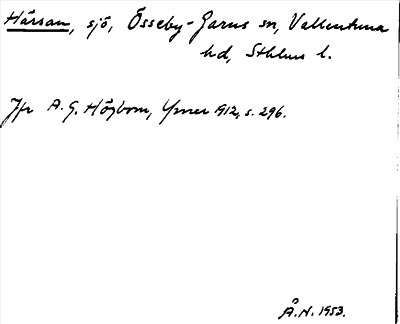 Härsan, sjö, Össeby-Garns sn, Vallentuna
hd, Sthlms l.
Jfr A. G. Högbom, Ymer 1912, s. 296.
Å. N. 1953.